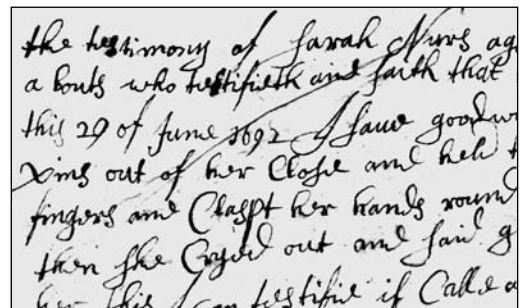 the testimony of Sarah Nurs ag
a bouts who testifieth and saith that
this 29 of June 1692 I saw goodw
pins out of her Close and held
fingers and Claspt her hands round
then she Cryed out and said g
her this I can testifie if Calle